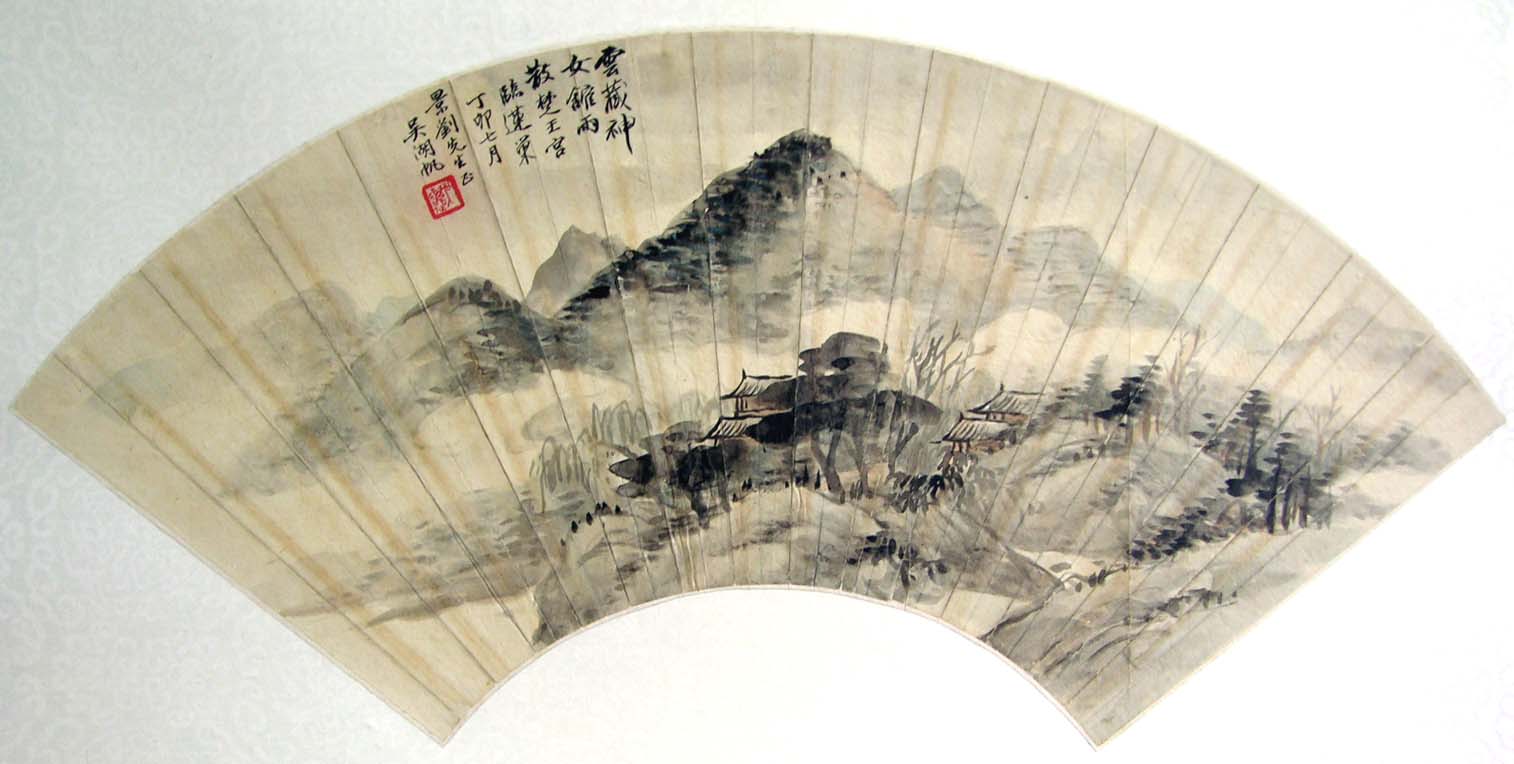 雲藏神
女館雨
散楚王宮
臨蓮巢
丁卯七月
景劉先生正
吴湖帆